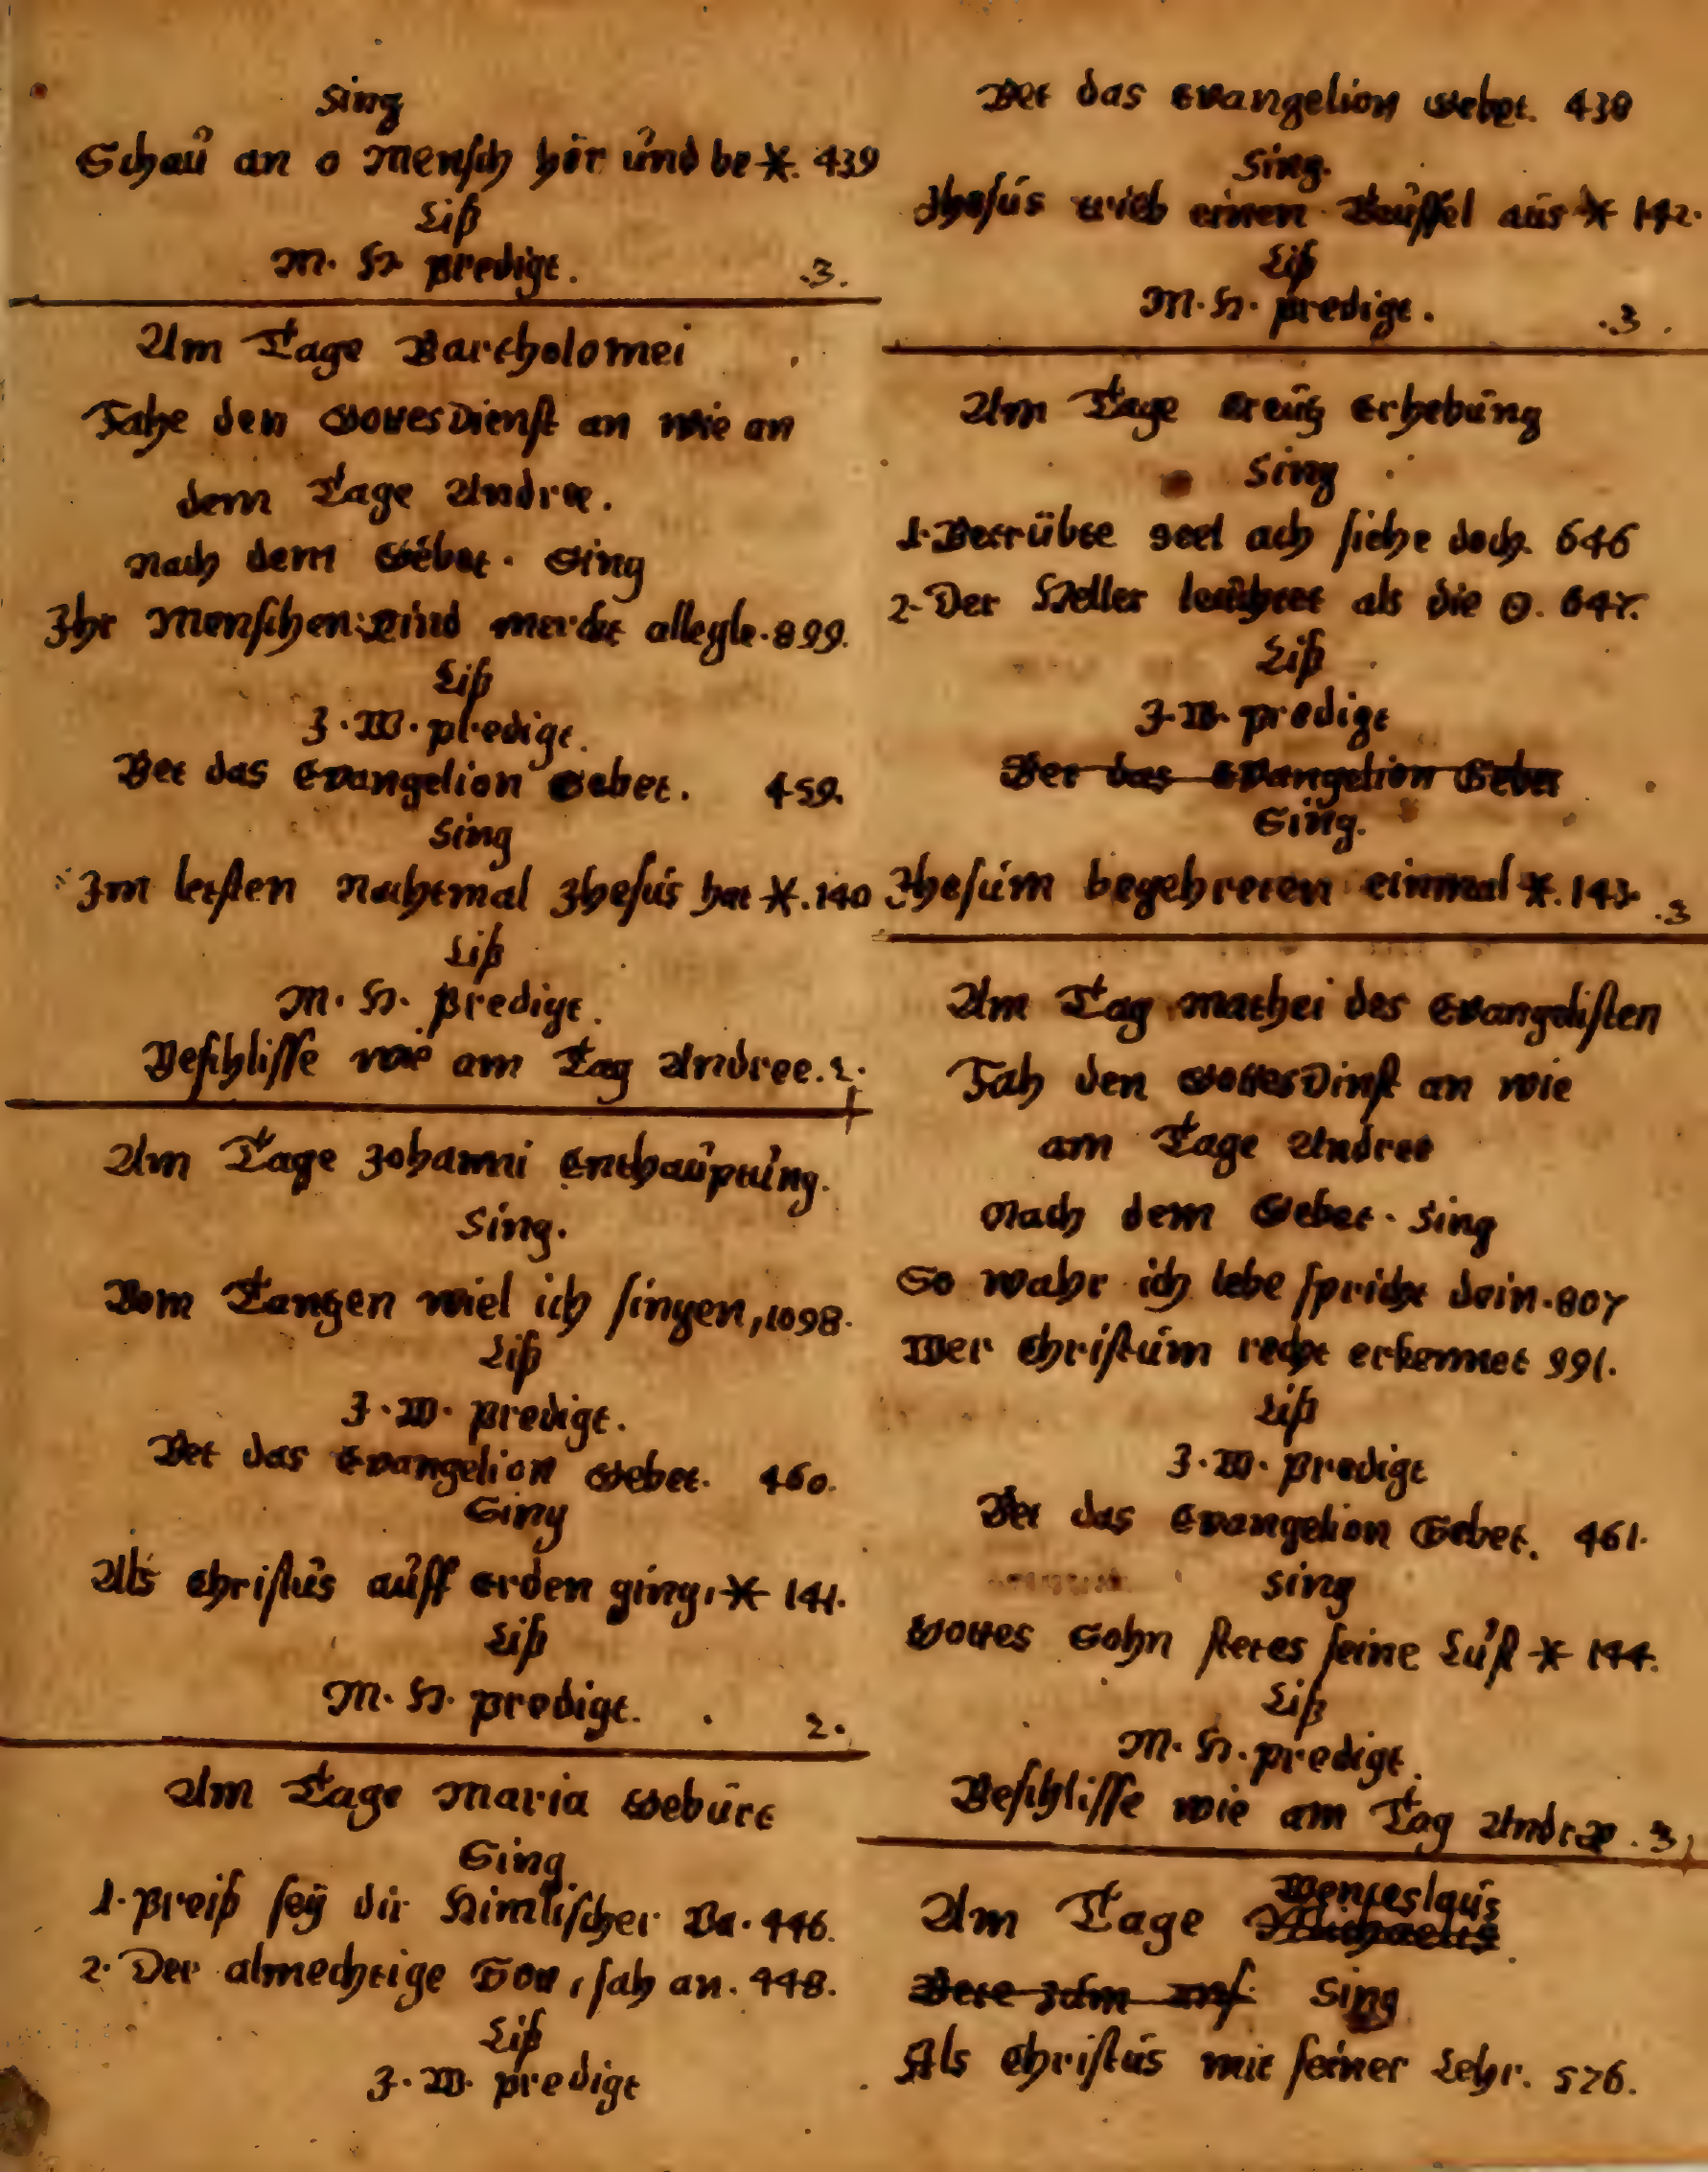 Sing
Schaú an o Mensch hör únd be *. 439
Liß
M. H. predigt. .3.
Am Tage Bartholomei
Fahe den GottesDienst an wie an
dem Tage Andree.
Nach dem Gebet. Sing
Ihr Menschen Kind merckt allegle. 899.
Liß
J. W. predigt.
Bet das Evangelion Gebet. 459.
Sing
Im letsten Nachtmal Jhesús hat *. 140
Liß
M. H. predigt.
Beschlisse wie am Tag Andree. 2.
Am Tage Johanni Enthaúptúng.
Sing.
Vom Tantzen wiel ich singen, 1098.
Liß
J. W. predigt.
Bet das Evangelion Gebet. 460.
Sing
Als Christús aúff Erden ging, * 141.
Liß
M. H. predigt. 2.
Am Tage Maria Gebúrt
Sing
1. Preiß seÿ dir Himlischer Va. 446.
2. Der almechtige Gott, sah an. 448.
Liß
J. W. predigt
Bet das Evangelion Gebet. 438
Sing.
Jhesús trieb einen Teúffel aús * 142.
Liß
M. H. predigt. .3.
Am Tage Creútz Erhebúng
Sing
1. Betrübte Seel ach siehe doch. 646
2. Der Heller leúchtet als die ʘ. 647.
Liß
J. W. predigt
Bet das Evangelion Gebet
Sing.
Jhesúm begehreten einmal *. 143. .3
Am Tag Mathei des Evangelisten
Fah den GottesDinst an wie
am Tage Andree
Nach dem Gebet. Sing
So wahr ich lebe spricht dein. 807
Wer Christúm recht erkennet 991.
Liß
J. W. predigt
Bet das Evangelion Gebet. 461.
Sing
Gottes Sohn stetes seine Lúst * 144.
Liß
M. H. predigt.
Beschlisse wie am Tag Andræ. 3.
Wenceslaús
Am Tage Michaelis
Bete Sing
Als Christús mit seiner Lehr. 576.